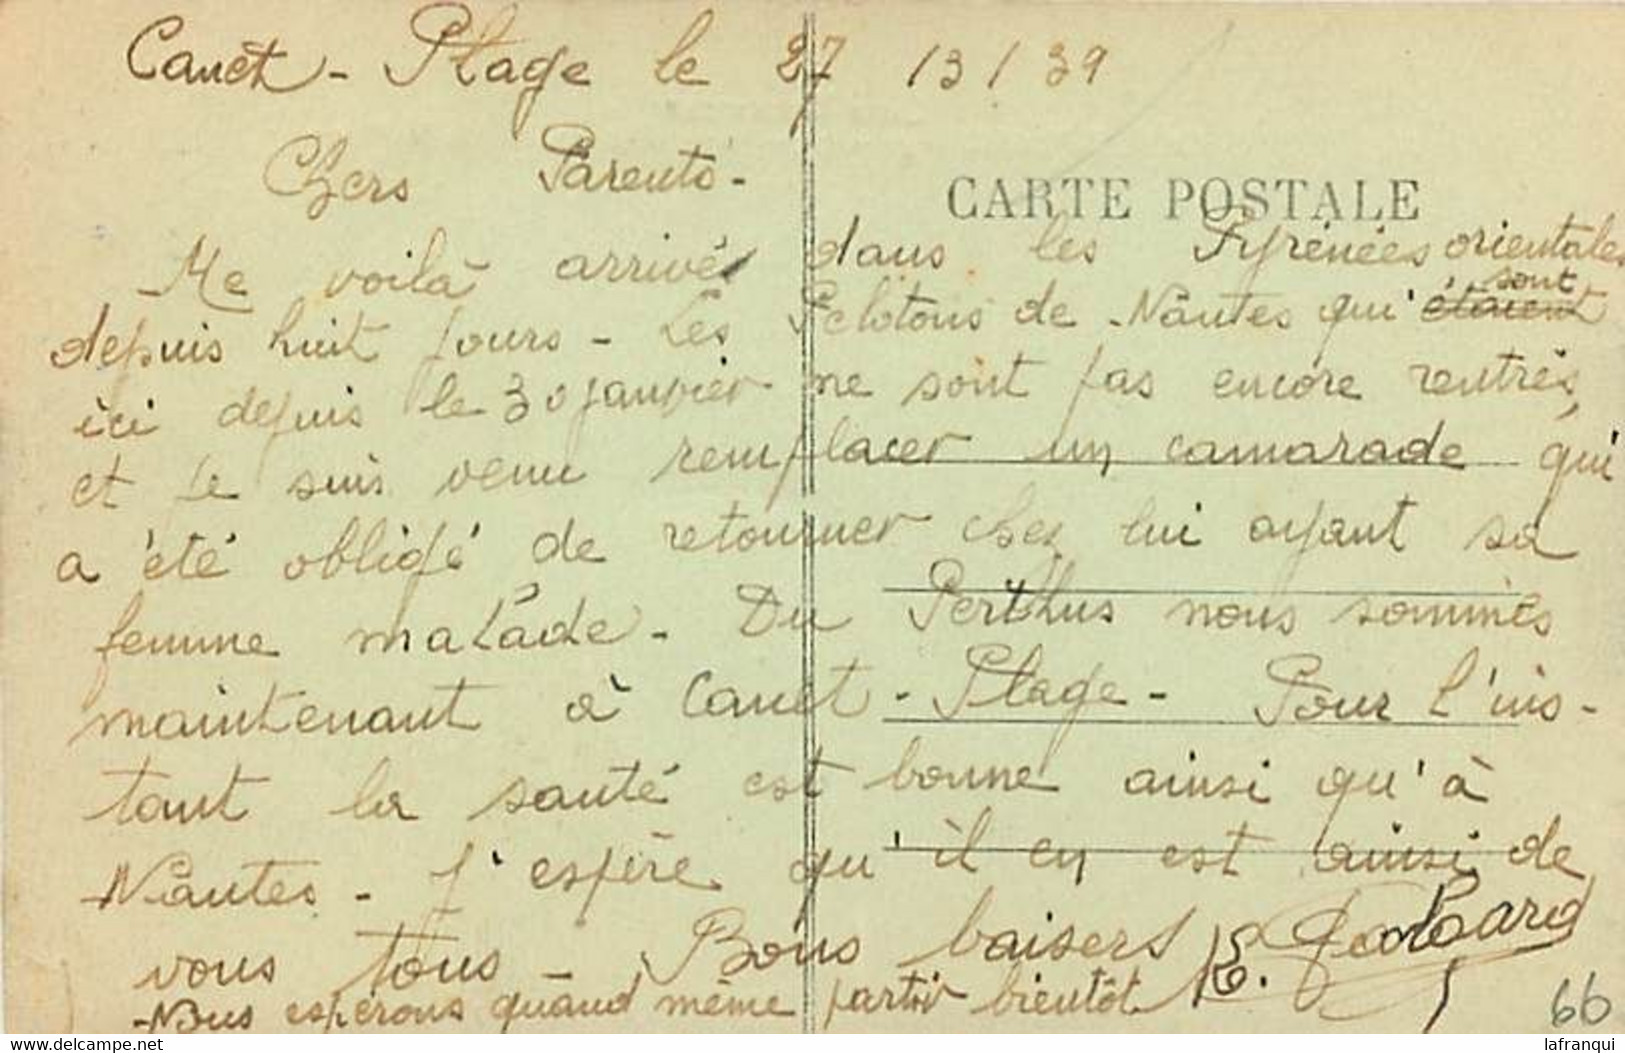 Canet - Plage le 27 /3/39
Chers Parents -
CARTE POSTALE
Me voilà arrivé dans les Pyrénées orientales
depuis huit jours - Les Pelotons de Nantes qui étaient sont
ici depuis le 30 janvier ne sont pas encore rentrés,
et je suis venu remplacer un camarade qui
a été obligé de retourner chez lui ayant sa
femme malade - Du Perthus nous sommes
maintenant à Canet - Plage - Pour l'ins-
tant la santé est bonne ainsi qu'à
Nantes - J'espère qu'il en est ainsi de
vous tous - Bons baisers
Nous espérons quand même partir bientôt
66
www.delcampe.net
lafranqui